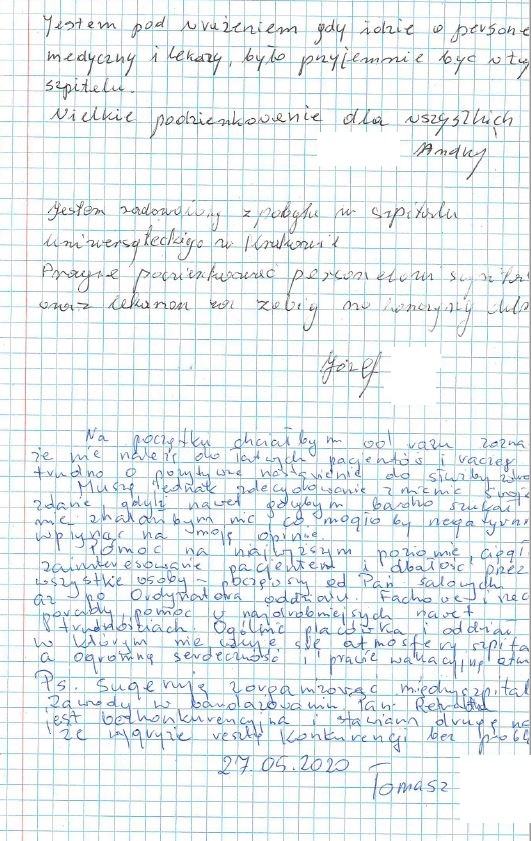 Jestem pod wrażeniem gdy idzie o persone
medyczny i lekazy, było przyjemnie być w ty
szpitelu.
Wielkie podzienkowenie dla wszystkich
Andrzej
Jestem zadowolony z pobytu w szpitalu
uniwersyteckiego w Krakowie
Pragnę podziękować personelowi
oraz lekarzom za zabieg na kończynę
Józef
Na początku chciałbym od razu zazna
że nie należę do łatwych pacjentów i raczej
trudno o pozytywne nastawienie do służby zdro
Muszę jednak zdecydowanie zmienić swoje
zdanie, gdyż nawet gdybym bardzo szukał
nie znalazłbym nic co mogło by negatywni
wpłynąć na moją opinię.
Pomoc na najwyższym poziomie, ciągł
zainteresowanie pacjentem i dbałość przez
wszystkie osoby - począwszy od Pań salowych
aż po Ordynatora oddziału. Fachowe i rzec
porady, pomoc w najdrobniejszych nawet
trudnościach. Ogólnie placówka i oddział
w którym nie czuje się atmosfery szpita
a ogromną serdeczność i prawie wakacyjną atm
Ps. Sugeruję zorganizować międzyszpital
zawody w bandażowaniu. Pan
jest bezkonkurencyjna i stawiam drugą na
że wygryzie resztę konkurencji bez probl
27.05.2020
Tomasz